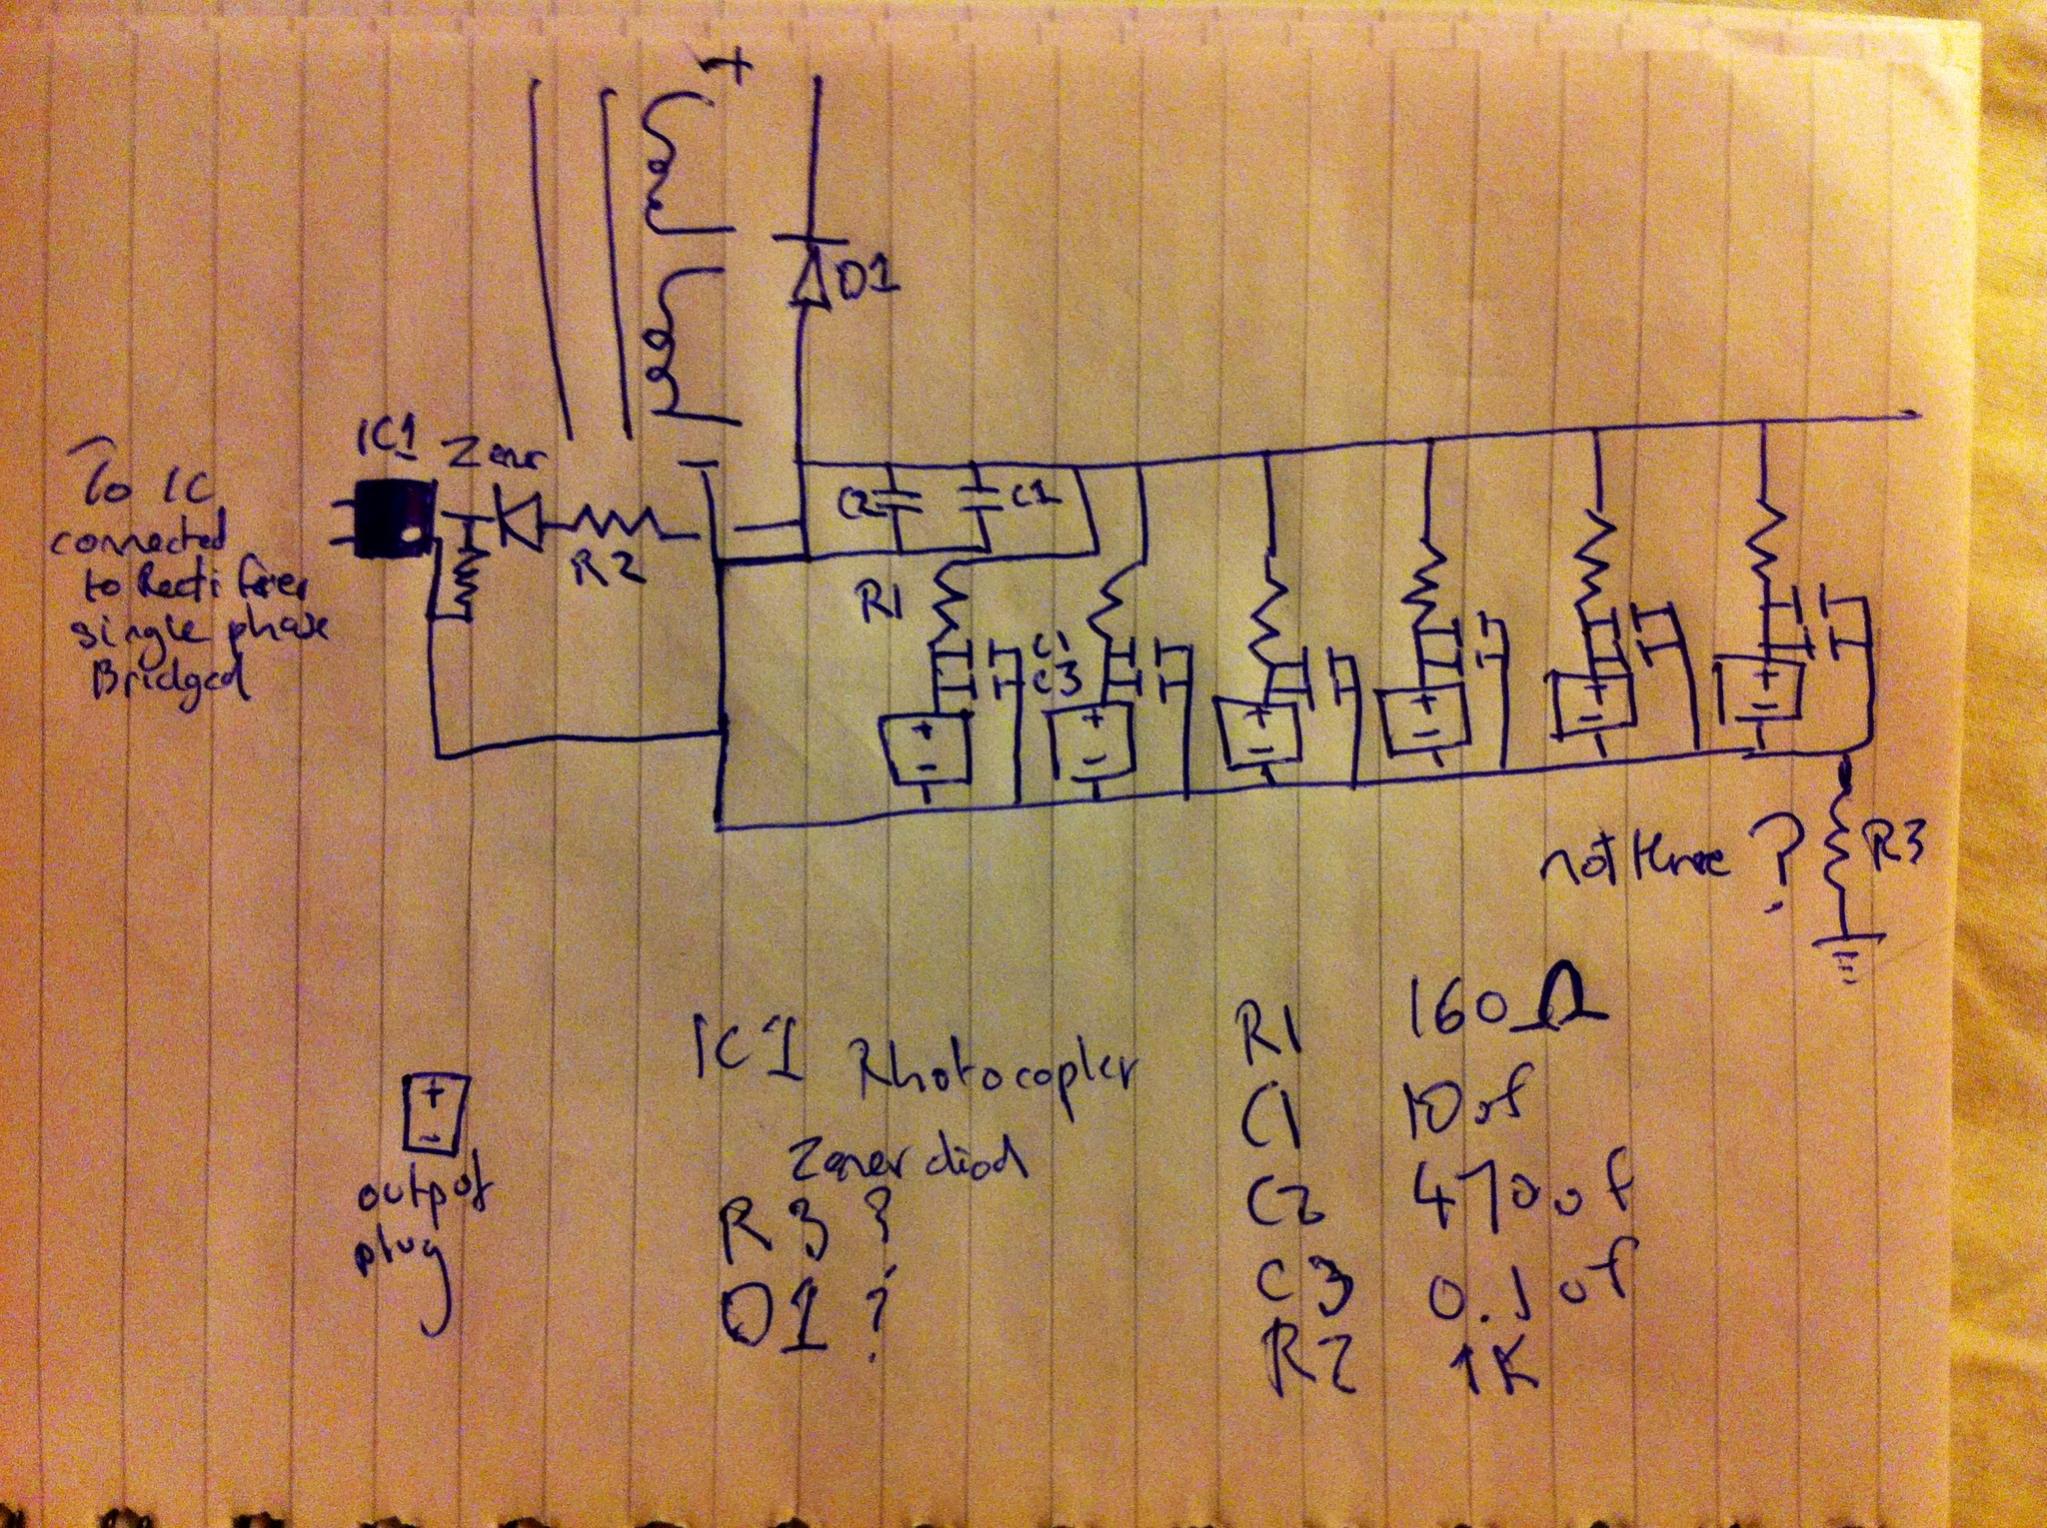 +
D1
IC1 Zenr
To IC
connected
to Rectifirer
single phase
Bridged
R2
C2
C1
R1
C1
C3
+
-
+
-
+
-
+
-
+
-
+
-
not three ?
R3
IC1 Photocopler
Zener diod
R3 ?
D1 ?
+
-
output
plug
R1 160Ω
C1 10uf
C2 470uf
C3 0.1uf
R2 1K